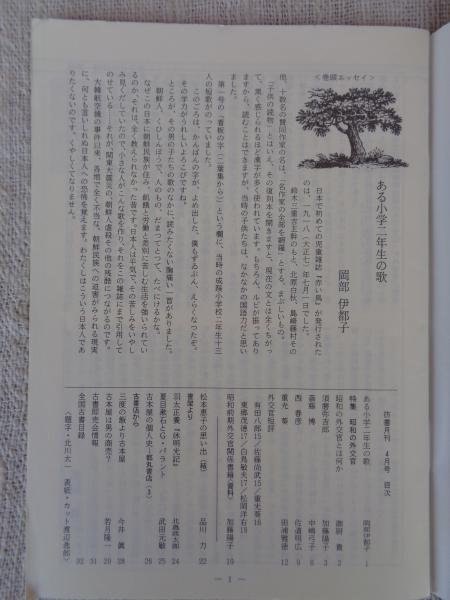 <巻頭エッセイ>
ある小学二年生の歌
岡部 伊都子
日本で初めての児童雑誌『赤い鳥』が発行された
のは、一九一八(大正七)年七月一日でした。
鈴木三重吉主幹のもと、北原白秋、島崎藤村その
他、十数名の賛同作家の名は、「名作家の全部を網羅」とする、まぶしいもの。
「子供の読物」とはいえ、その復刻本を開きますと、現在の文とは全くちがっ
て、黒く感じられるほど漢字が多く使われています。もちろん、ルビが振ってあり
ますから、読むことはできますが、当時の子供たちは、なかなかの国語力だと思い
ました。
第一号の「看板の字(二葉集から)」という欄に、当時の成蹊小学校二年生十三
人の短歌がのっていました。
このごろは、かんばんの字が、よめ出した、僕もずゐぶん、えらくなつたぞ。
その学力がうれしいよろこびですね。
ところが、その男の子たちの歌のなかに、読みたくない胸痛い一首がありました。
朝鮮人、くひしんぼうで、人のもの、だまつてとつて、たべにけるかな。
なぜこの日本に朝鮮民族が住み、飢餓と労働と差別に苦しむ生活を強いられてい
るのか、それは、全く教えられなかった昔です。日本人は平気で、その苦しみをいやし
み見くだしていたので、小さな人がこんな歌を作り、それをこの雑誌にまで引用して
のせている。それが、関東大震災の朝鮮人虐殺その他の残酷につながるのです。
大韓航空機の事件以来、各地で全く不当な、朝鮮民族への迫害がみられる現実
に、何とも言いしれぬ日本人への恐怖を覚えます。わたくしはこういう日本人であ
りたくないのです。くやしくてなりません。
彷書月刊 4月号 目次
ある小学二年生の歌 岡部伊都子 1
特集 昭和の外交官
昭和の外交官とは何か 瀬川 善 2
須磨弥吉郎 加藤陽子 3
斎藤 博 中嶋弓子 6
西 春彦 佐道明広 9
重光 葵 田浦雅徳 12
外交官短評
有田八郎15/佐藤尚武15/重光葵16
東郷茂徳17/白鳥敏夫17/松岡洋右18
昭和前期外交官関係書籍(資料) 加藤陽子 19
松本恵子の思い出(補) 品川 力 22
書架より
羽太正養『休明光記』 24
夏目漱石とG・バラント 武田元敏 25
古本屋の個人史 26
古書店から
三度の飯より古本屋 今井 眞 28
古本屋は男の商売? 若月隆一 29
古書即売会情報 31
全国古書目録 32
<題字・北川太一 表紙・カット渡辺逸郎>
— 1 —